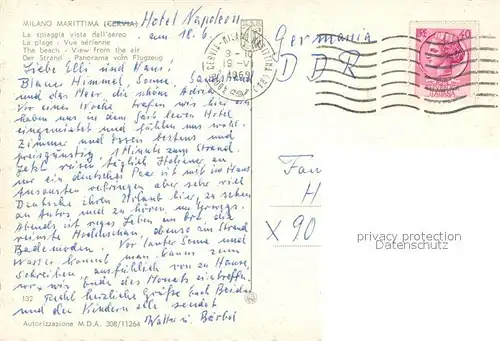 MILANO MARITTIMA (CERVIA) Hotel Napoleon
La spiaggia vista dall'aereo am 18.6.
La plage - Vue aérienne
The beach - View from the air
Der Strand - Panorama vom Flugzeug
Liebe Elli und Hans!
Blauer Himmel, Sonne, Sandstrand
und das Meer, die schöne Adria
Vor einer Woche trafen wir hier ein
haben uns in dem fast leeren Hotel
eingenistet und fühlen uns wohl.
Zimmer und Essen bestens und
preisgünstig 1 Minute zum Strand.
Jetzt reisen täglich Italiener an
nur ein deutsches Paar ist mit im Haus
Ansonsten verbringen aber sehr viel
Deutsche ihren Urlaub hier, zu sehen
an Autos und zu hören
Abends ist reges Leben am
reinste Modenschau, ebenso am Strand
Bademoden. Vor lauter Sonne und
Wasser kommt man kaum zum
Schreiben, ausführlich von zu Hause,
wo wir Ende des Monats eintreffen.
Recht herzliche Grüße Euch Beiden
und den Kindern alle sendet
Walter u. Bärbel
132
Autorizzazione M.D.A. 308/11264
CERVIA-MILANO MARITTIMA
9-10
19-VI
1969
Germania
DDR
40
Fam
H
X 90
privacy protection
Datenschutzwasserzeichen